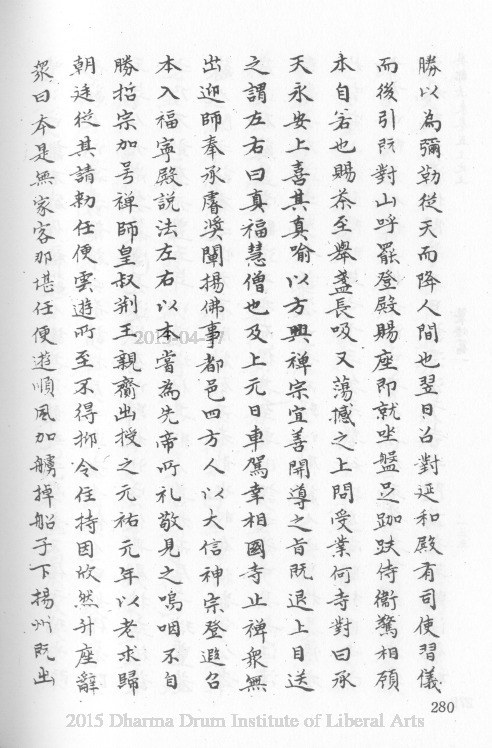 勝以為彌勒從天而降人間也翌日召對延和殿有司使習儀
而後引既對山呼罷登殿賜座即就坐盤足跏趺侍衛驚相顧
本自若也賜茶至舉盞長吸又蕩撼之上問受業何寺對曰承
天永安上喜其真喻以方興禅宗宜善開導之旨既退上目送
之謂左右曰真福慧僧也及上元日車駕幸相國寺止禅衆無
出迎師奉承睿獎闡揚佛事都邑四方人以大信神宗登遐召
本入福寧殿説法左右以本嘗為先帝所礼敬見之嗚咽不自
勝哲宗加号禅師皇叔荆王親齎出授之元祐元年以老求歸
朝廷從其請勑任便雲遊所至不得抑令住持因欣然升座辭
衆曰本是無家客那堪任便遊順風加艣棹船子下揚州既出
280
2015 Dharma Drum Institute of Liberal Arts